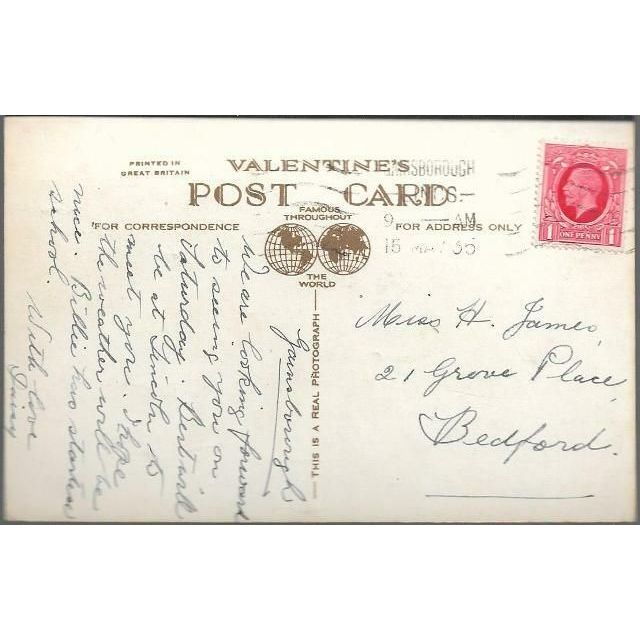 PRINTED IN
GREAT BRITAIN
VALENTINE'S
POST CARD
FAMOUS
THROUGHOUT
THE
WORLD
FOR CORRESPONDENCE
FOR ADDRESS ONLY
THIS IS A REAL PHOTOGRAPH
9 AM
15 MAY 35
ONE PENNY
1 1
Gainsborough
We are looking forward
to seeing you on
Saturday. Bert will
be at Lincoln to
meet you. I hope
the weather will be
nice. Billie has started
school.
With love
Daisy
Miss H. James,
21 Grove Place,
Bedford.